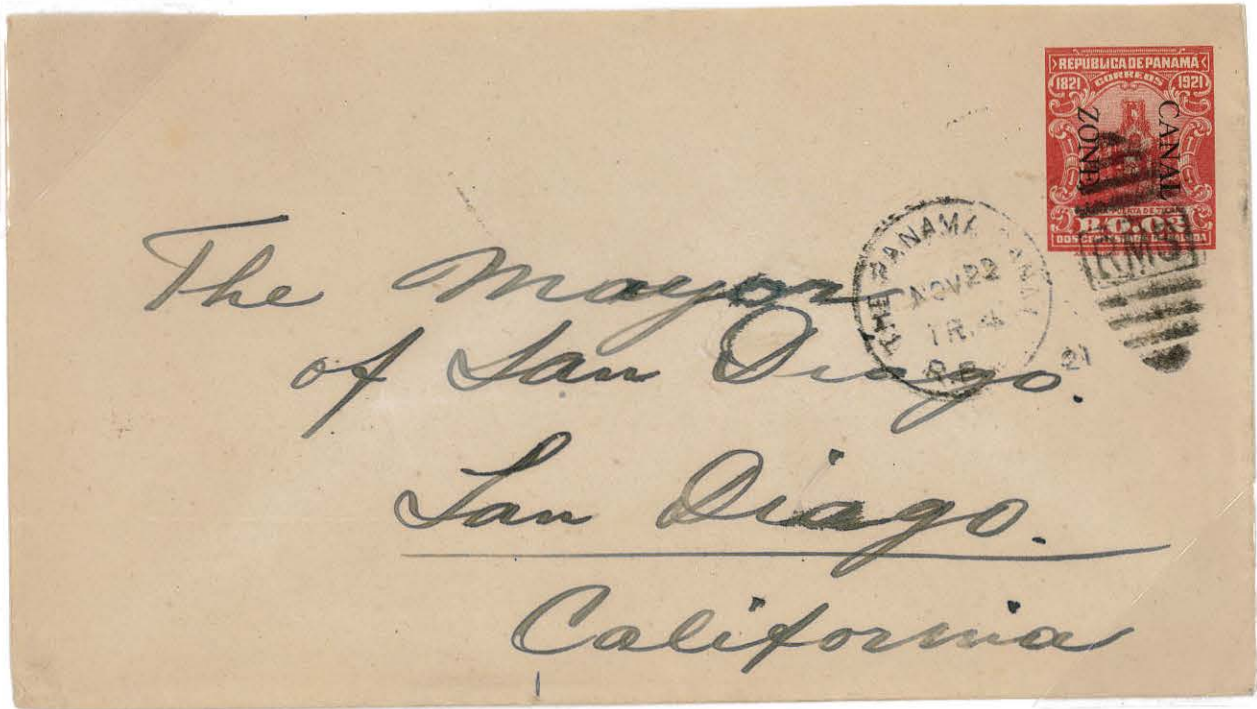 REPUBLICA DE PANAMA
1821 CORREOS 1921
CANAL
ZONE
B.0.02
THE PANAMA CANAL
NOV 22
TR. 4
21
R.M.S
The Mayor
of San Diago.
San Diago.
California